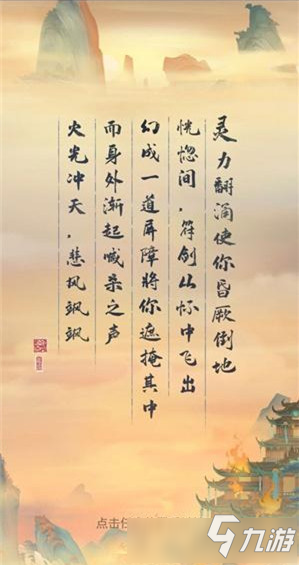 灵力翻涌使你昏厥倒地
恍惚间，符剑从怀中飞出
幻成一道屏障將你遮掩其中
而身外渐起喊杀之声
火光冲天，悲风飒飒
点击任
九游